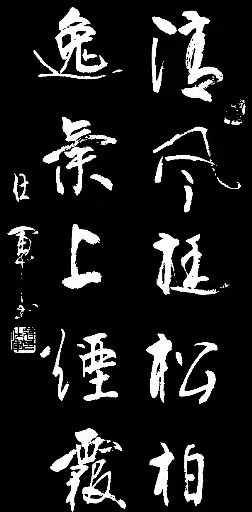 清风挺松柏
逸氣上煙霞